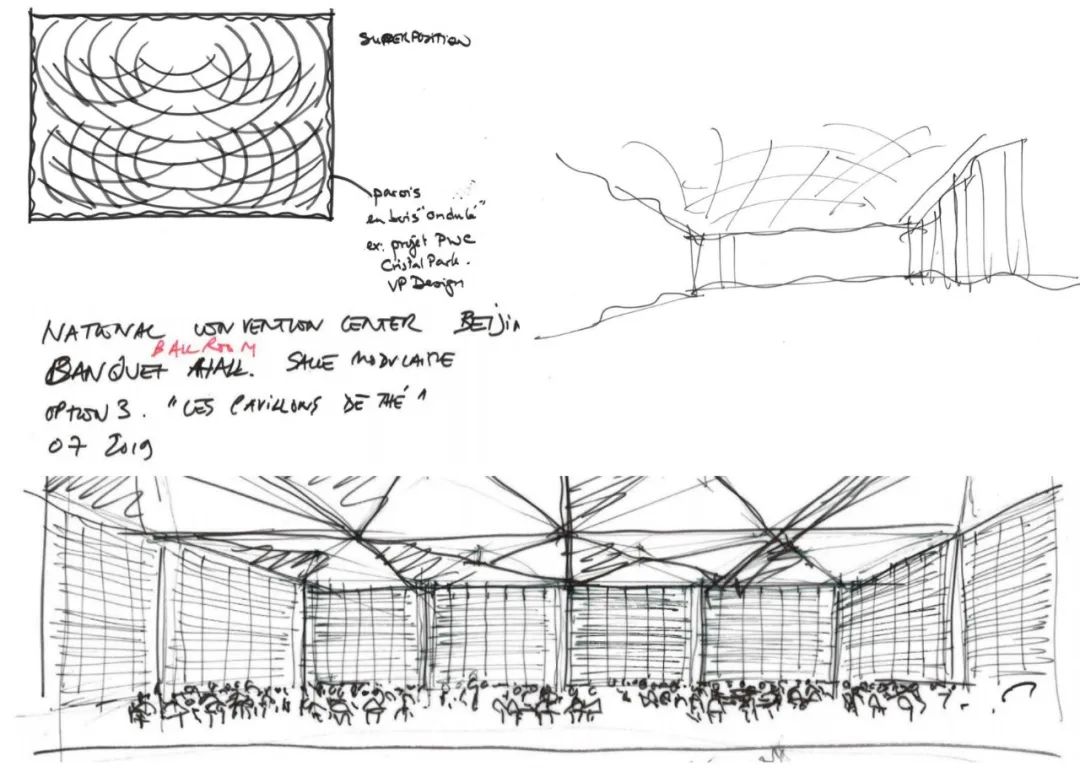 SUPERPOSITION
parois
en bois "ondulé"
ex. projet PWC
Cristal Park.
VP Design
NATIONAL CONVENTION CENTER BEijin
BALLROOM
BANQUET HALL. SALLE MODULAIRE
OPTION 3. "LES PAVILLONS DE THÉ"
07 2019